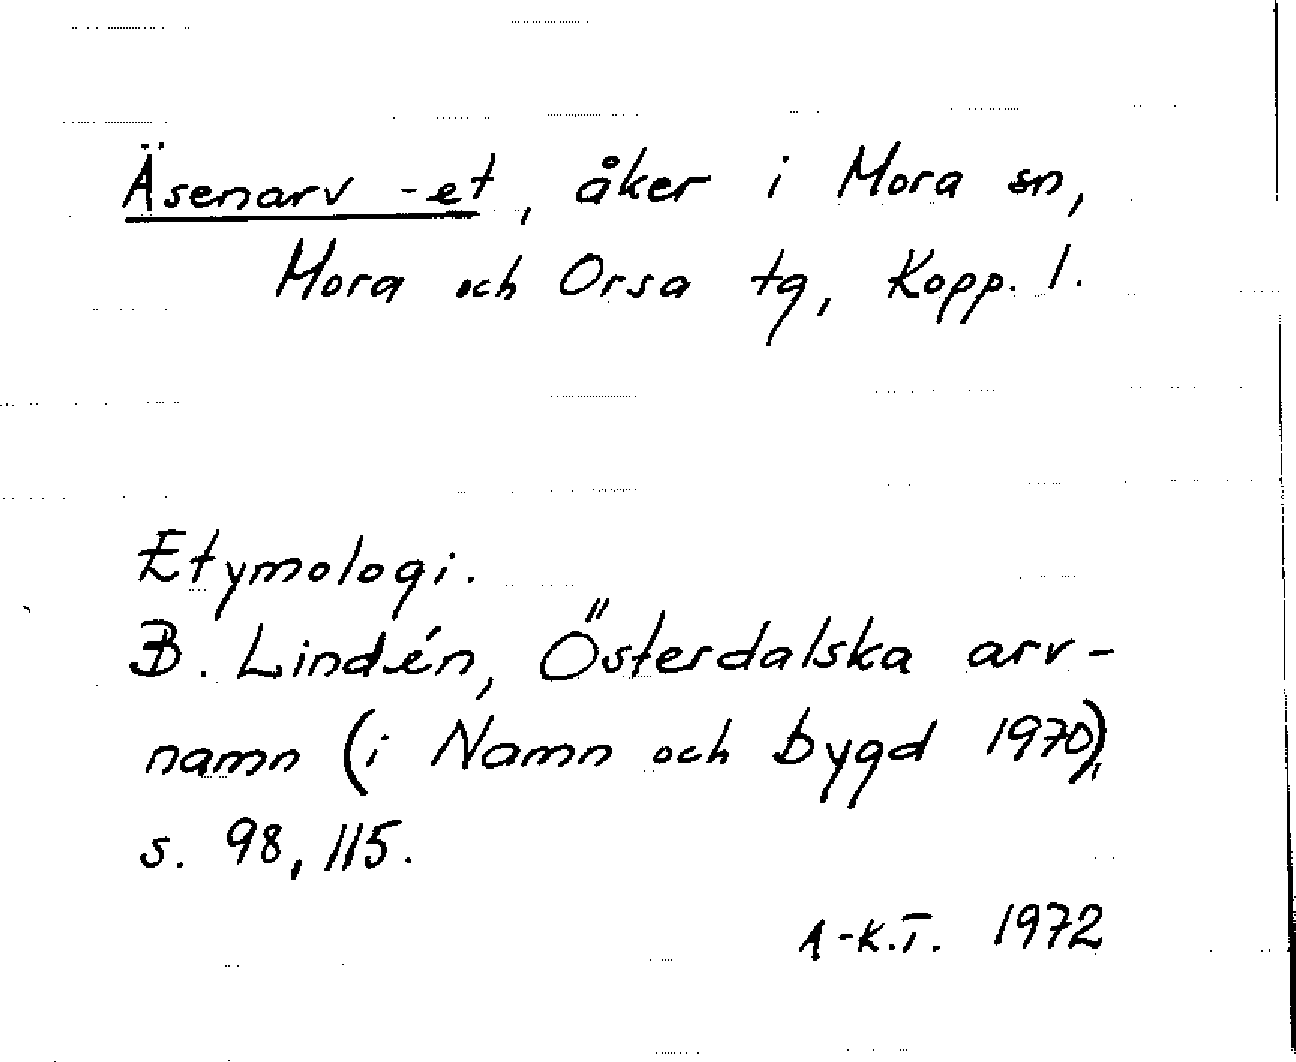 Äsenarv -et, åker i Mora sn,
Mora och Orsa tg, Kopp. l.
Etymologi.
B. Lindén, Österdalska arv-
namn (i Namn och bygd 1970),
s. 98, 115.
A-K.T. 1972